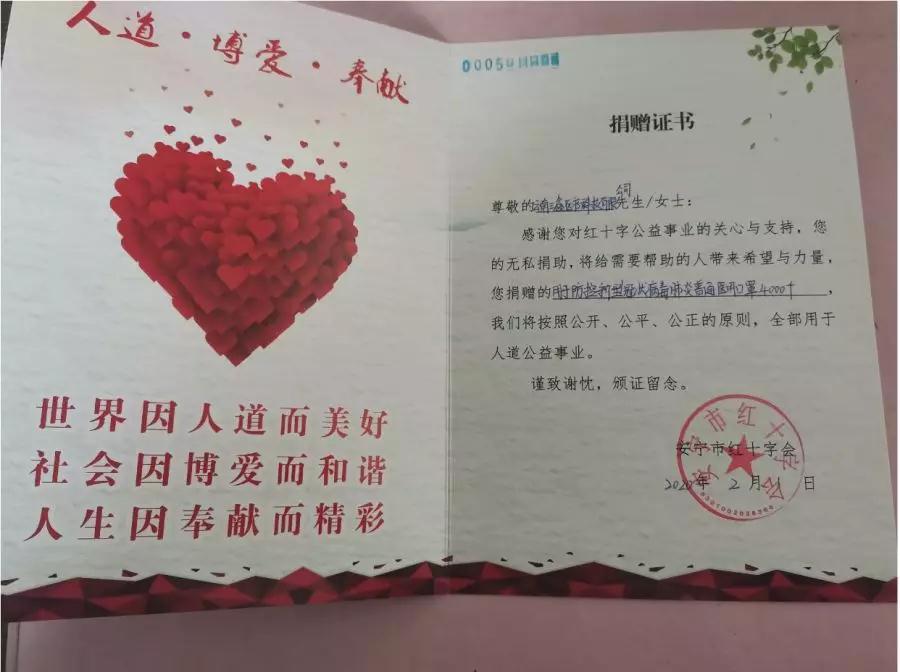 人道·博爱·奉献
世界因人道而美好
社会因博爱而和谐
人生因奉献而精彩
捐赠证书
尊敬的 司 先生/女士：
感谢您对红十字公益事业的关心与支持，您
的无私捐助，将给需要帮助的人带来希望与力量，
您捐赠的用于防控新型冠状病毒肺炎普通医用口罩4000个，
我们将按照公开、公平、公正的原则，全部用于
人道公益事业。
谨致谢忱，颁证留念。
安宁市红十字会
2020年 2月 1日
安宁市红十字会